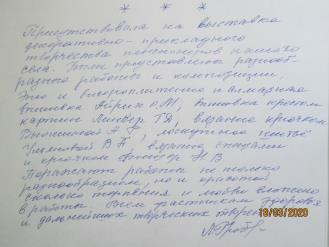 * * *
Присутствовала на выставке
декоративно-прикладного
творчества пенсионеров нашего
села. Были представлены разнооб-
разные работы и композиции.
Это и бисероплетение и алмазная
вышивка О.М, вышивка крестом
картин Т.Я, вязание крючком
А.Г, лоскутное шитьё
В.П, вязание спицами
и крючком Н.В
Поражает работы не только
разнообразием, но и красотой
сколько терпения и любви вложено
в работы. Всем участникам здоровья
и дальнейших творческих
19/03/2020